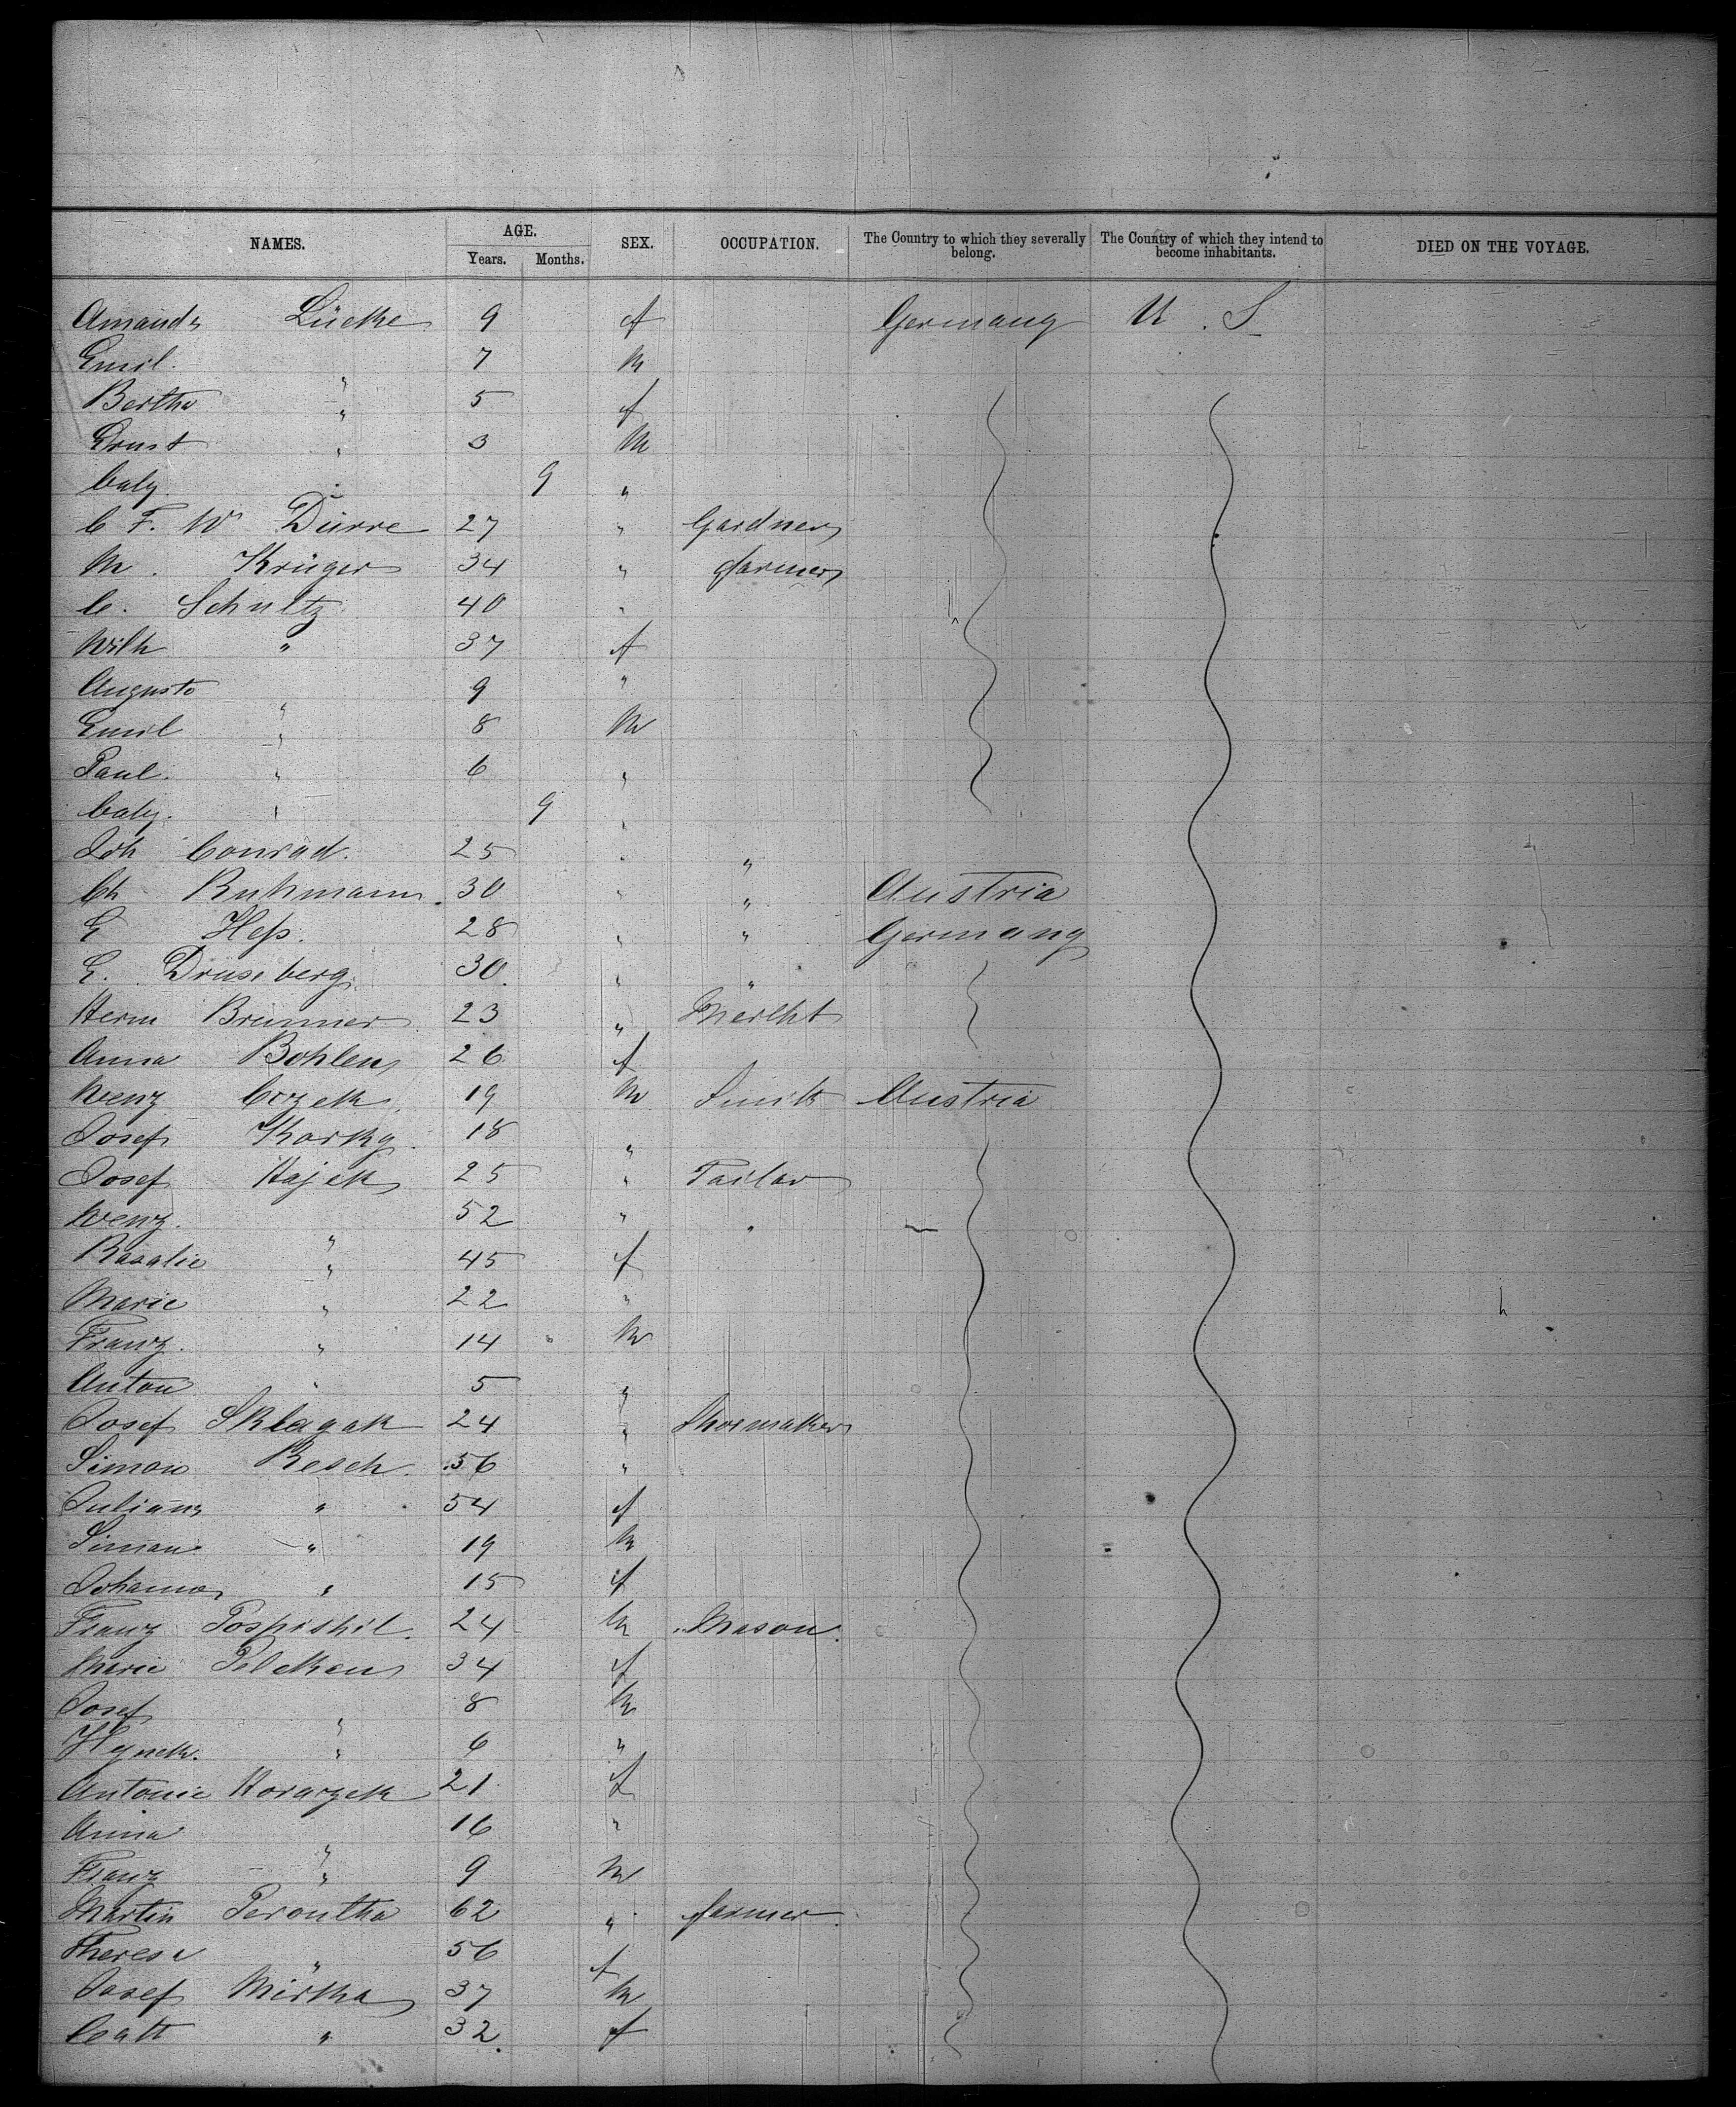 NAMES. AGE. Years. Months. SEX. OCCUPATION. The Country to which they severally belong. The Country of which they intend to become inhabitants. DIED ON THE VOYAGE.
Amanda Lücke 9 f Germany U. S
Emil. " 7 m
Bertha " 5 f
Ernst " 3 m
baby. " 9 "
C F. W Dürre 27 " Gardner
M. Krüger 34 " farmer
C. Schultz 40 "
Wilh " 37 f
Auguste " 9 "
Emil " 8 m
Paul. " 6 "
baby. " 9 "
Joh Conrad. 25 " "
Ch Ruhmann. 30 " " Austria
E Heß. 28 " " Germany
E. Druseberg. 30. " "
Herm Brunner 23 " Mercht
Anna Bohlen 26 f
Wenz Cozek 19 m Smith Austria
Josef Korky 18 "
Josef Hajek 25 " Tailor
Wenz. " 52 " "
Rosalie " 45 f
Marie " 22 "
Franz. " 14 m
Anton " 5 "
Josef 24 " Shoemaker
Simon Resch. 56 "
Juliana " 54 f
Simon " 19 m
Johanna " 15 f
Franz Pospishil. 24 m Mason.
Marie 34 f
Josef " 8 m
Hynek. " 6 "
Antonie 21 f
Anna " 16 "
Franz " 9 m
Martin Peroutka 62 " farmer
Therese " 56 f
Josef Mirtka 37 m
Cath " 32. f